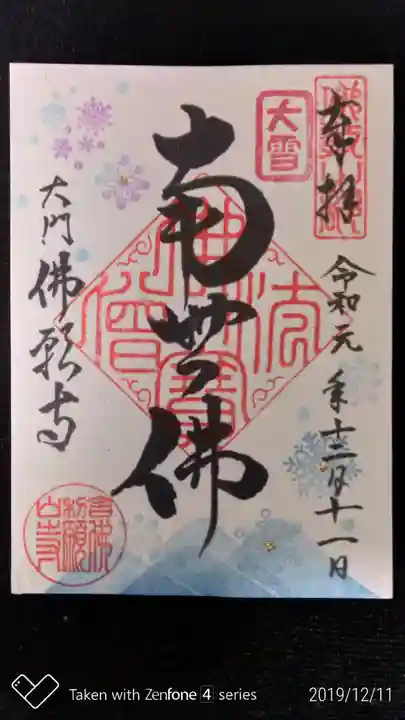 奉拝
大雪
令和元年十二月十一日
南無佛
佛法僧寶
大門 佛願寺
Taken with Zenfone 4 series
2019/12/11